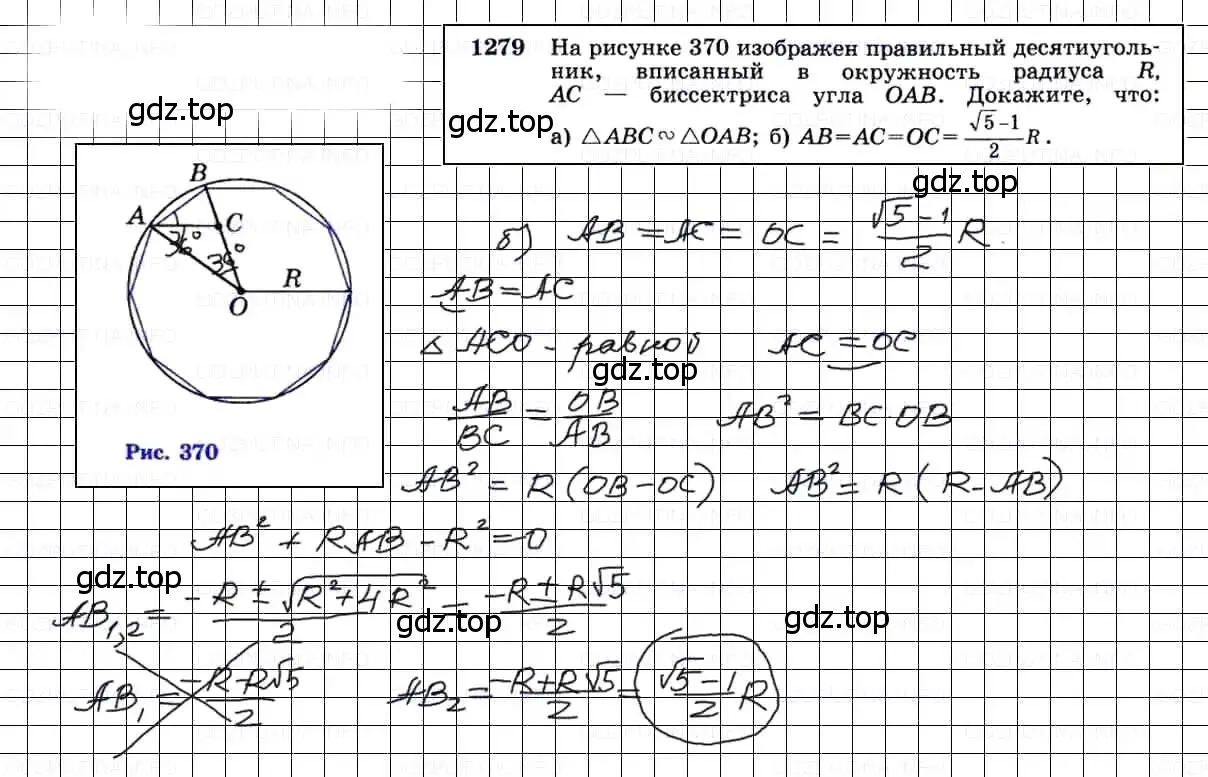 1279 На рисунке 370 изображен правильный десятиуголь-
ник, вписанный в окружность радиуса R,
AC — биссектриса угла OAB. Докажите, что:
а) △ABC ∾ △OAB; б) AB=AC=OC= (√5-1)/2 R.
gdz.top
gdz.top
gdz.top
B
A
C
36°
36°
R
O
Рис. 370
б) AB = AC = OC = (√5-1)/2 R
AB = AC
△ ACO - равноб AC = OC
gdz.top
AB/BC = OB/AB AB² = BC·OB
AB² = R (OB-OC) AB² = R (R-AB)
AB² + RAB - R² = 0
gdz.top
AB₁,₂ = (-R ± √(R²+4R²))/2 = (-R ± R√5)/2
gdz.top
gdz.top
AB₁ = (-R-R√5)/2 AB₂ = (-R+R√5)/2 = (√5-1)/2 R